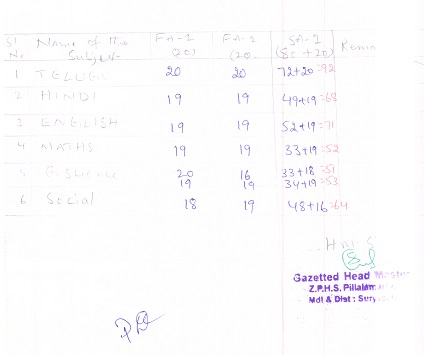 Sl No Name of the Subject FA-1 (20) FA-2 (20) SA-1 (80+20) Remar
1 TELUGU 20 20 72+20=92
2 HINDI 19 19 49+19=68
3 ENGLISH 19 19 52+19=71
4 MATHS 19 19 33+19=52
5 20 16 33+18=51
19 19 34+19=53
6 Social 18 19 48+16=64
Gazetted Head Master
Z.P.H.S.
Mdl & Dist :